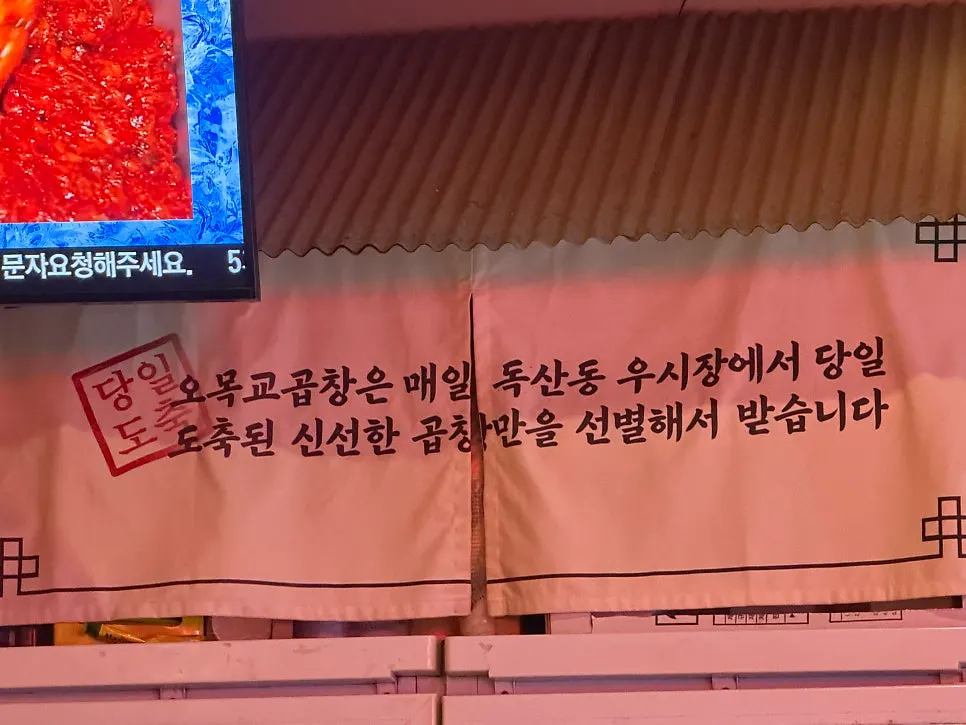 문자요청해주세요. 5
당일
도축
오목교곱창은 매일 독산동 우시장에서 당일
도축된 신선한 곱창만을 선별해서 받습니다